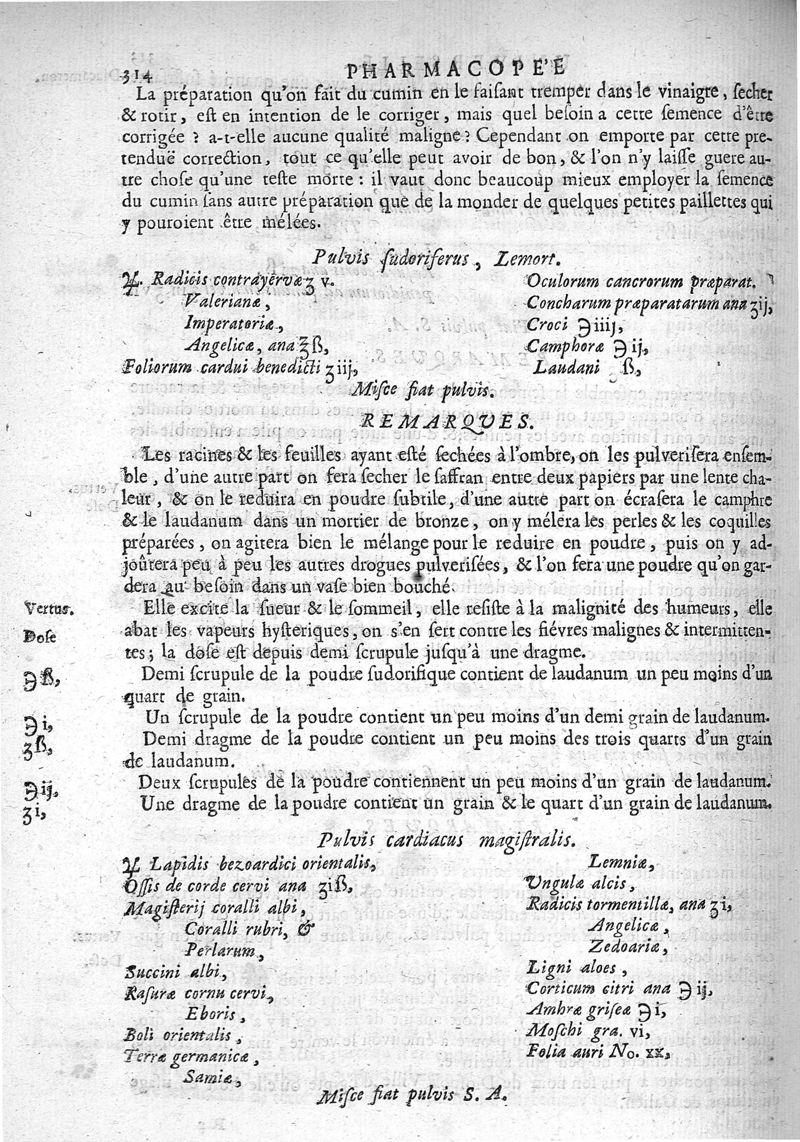 314 PHARMACOPE'E
La préparation qu'on fait du cumin en le faiſant tremper dans le vinaigre, ſecher
& rotir, eſt en intention de le corriger, mais quel beſoin a cette ſemence d'être
corrigée ? a-t-elle aucune qualité maligne ? Cependant on emporte par cette pre-
tenduë correction, tout ce qu'elle peut avoir de bon, & l'on n'y laiſſe guere au-
tre choſe qu'une teſte morte : il vaut donc beaucoup mieux employer la ſemence
du cumin ſans autre préparation que de la monder de quelques petites paillettes qui
y pouroient être mélées.
Pulvis ſudoriferus, Lemort.
♃. Radicis contrayervæ ʒ v.
Valerianæ,
Imperatoriæ,
Angelicæ, ana ʒß,
Foliorum cardui benedicti ʒiij,
Oculorum cancrorum præparat.
Concharum præparatarum ana ʒij,
Croci ℈iiij,
Camphoræ ℈ij,
Laudani ß,
Miſce fiat pulvis.
REMARQUES.
Les racines & les feuilles ayant eſté ſechées à l'ombre, on les pulveriſera enſem-
ble, d'une autre part on fera ſecher le ſaffran entre deux papiers par une lente cha-
leur, & on le reduira en poudre ſubtile, d'une autre part on écraſera le camphre
& le laudanum dans un mortier de bronze, on y mélera les perles & les coquilles
préparées, on agitera bien le mélange pour le reduire en poudre, puis on y ad-
joûtera peu à peu les autres drogues pulveriſées, & l'on fera une poudre qu'on gar-
dera au beſoin dans un vaſe bien bouché.
Vertus. Elle excite la ſueur & le ſommeil, elle reſiſte à la malignité des humeurs, elle
Doſe abat les vapeurs hyſteriques, on s'en ſert contre les fiévres malignes & intermitten-
tes ; la doſe eſt depuis demi ſcrupule juſqu'à une dragme.
℈ß, Demi ſcrupule de la poudre ſudorifique contient de laudanum un peu moins d'un
quart de grain.
℈i, Un ſcrupule de la poudre contient un peu moins d'un demi grain de laudanum.
ʒß, Demi dragme de la poudre contient un peu moins des trois quarts d'un grain
de laudanum.
℈ij, Deux ſcrupules de la poudre contiennent un peu moins d'un grain de laudanum.
ʒi, Une dragme de la poudre contient un grain & le quart d'un grain de laudanum.
Pulvis cardiacus magiſtralis.
♃ Lapidis bezoardici orientalis,
Oſſis de corde cervi ana ʒiß,
Magiſterij coralli albi,
Coralli rubri, &
Perlarum,
Succini albi,
Raſuræ cornu cervi,
Eboris,
Boli orientalis,
Terræ germanicæ,
Samiæ,
Lemniæ,
Ungulæ alcis,
Radicis tormentillæ, ana ʒi,
Angelicæ,
Zedoariæ,
Ligni aloes,
Corticum citri ana ℈ij,
Ambræ griſeæ ℈i,
Moſchi gra. vi,
Folia auri No. xx,
Miſce fiat pulvis S. A.